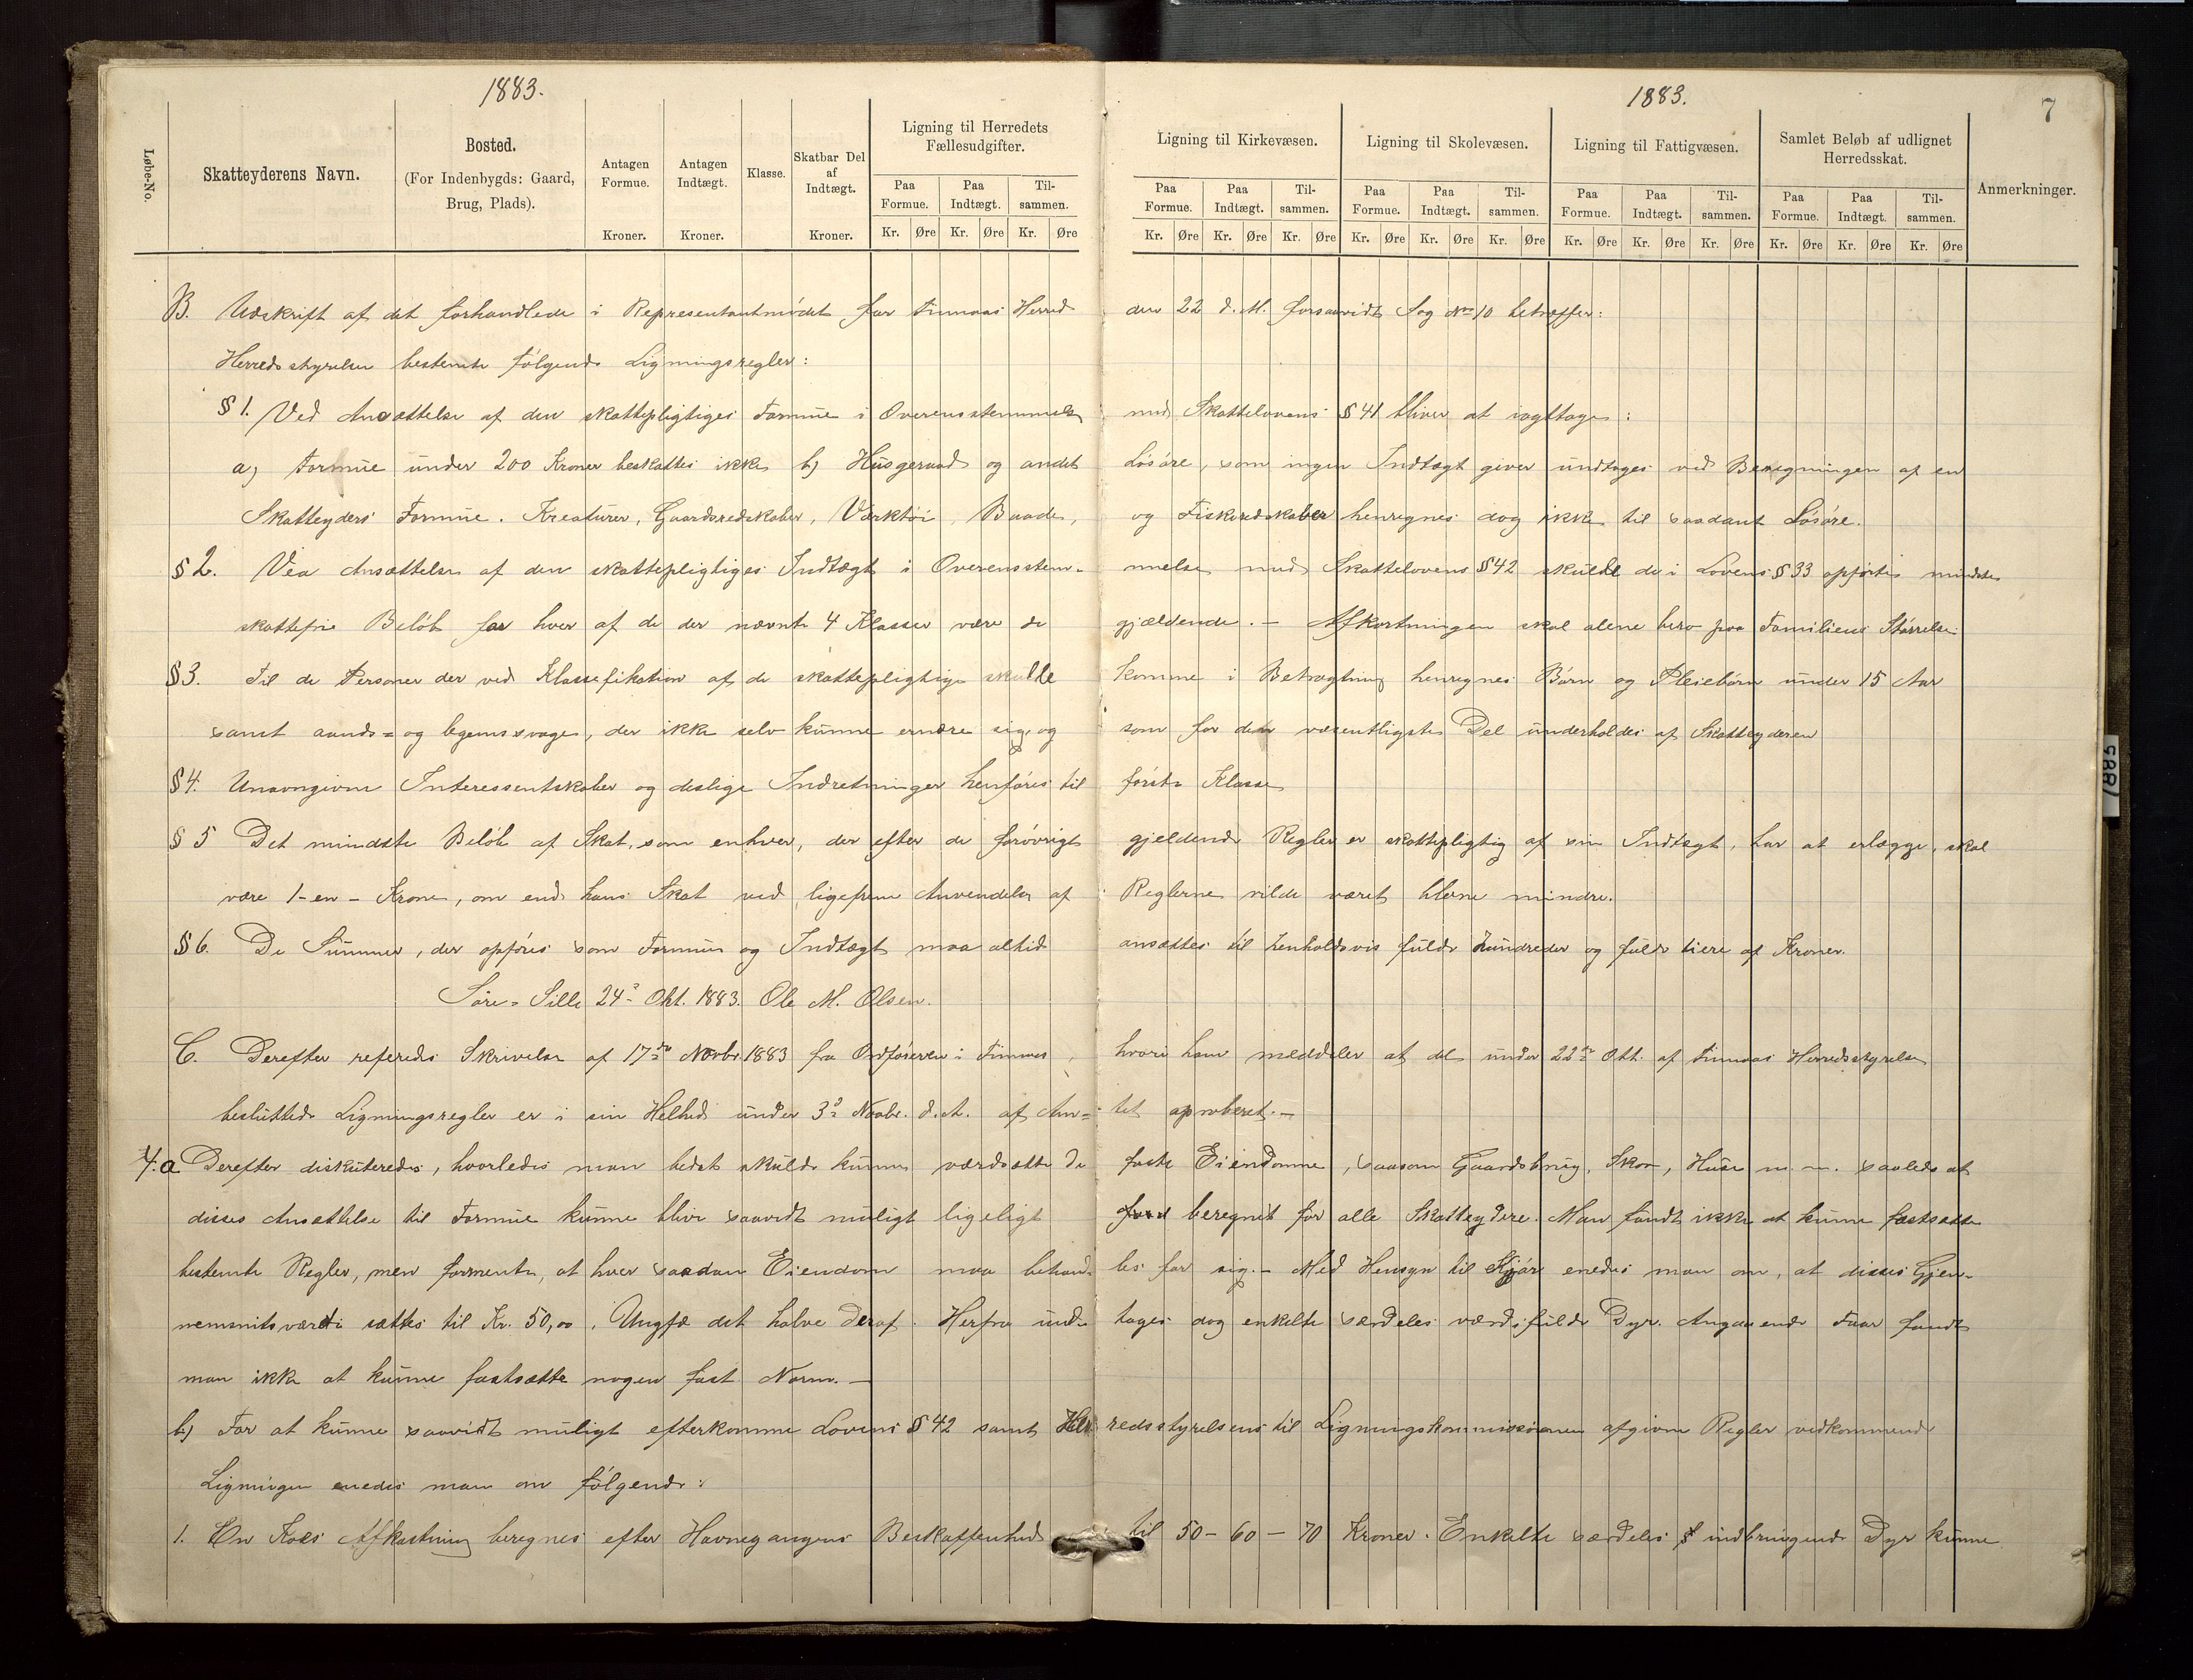 1883.
1883.
7
Løbe-No.
Skatteyderens Navn.
Bosted.
(For Indenbygds: Gaard,
Brug, Plads).
Antagen
Formue.
Kroner.
Antagen
Indtægt.
Kroner.
Klasse.
Skatbar Del
af
Indtægt.
Kroner.
Ligning til Herredets
Fællesudgifter.
Paa
Formue.
Paa
Indtægt.
Til-
sammen.
Kr. Øre Kr. Øre Kr. Øre
Ligning til Kirkevæsen.
Paa
Formue.
Paa
Indtægt.
Til-
sammen.
Kr. Øre Kr. Øre Kr. Øre
Ligning til Skolevæsen.
Paa
Formue.
Paa
Indtægt.
Til-
sammen.
Kr. Øre Kr. Øre Kr. Øre
Ligning til Fattigvæsen.
Paa
Formue.
Paa
Indtægt.
Til-
sammen.
Kr. Øre Kr. Øre Kr. Øre
Samlet Beløb af udlignet
Herredsskat.
Paa
Formue.
Paa
Indtægt.
Til-
sammen.
Kr. Øre Kr. Øre Kr. Øre
Anmerkninger.
B. Udskrift af det forhandlede i Representantmødet for Finnaas Herred den 22 d. M. forsaavidt Sag No 10 betræffer:
Herredsstyrelsen bestemte følgende Ligningsregler:
§ 1. Ved Ansættelse af den skattepligtiges Formue i Overensstemmelse med Skattelovens § 41 bliver at iagttage:
a) Formue under 200 Kroner beskattes ikke b) Husgeraad og andet Løsøre, som ingen Indtægt giver undtages ved Beregningen af en
Skatteyders Formue. Kreaturer, Gaardsredskaber, Værktøi, Baade, og Fiskeredskaber henregnes dog ikke til saadant Løsøre.
§ 2. Ved Ansættelse af den skattepligtiges Indtægt i Overensstem- melse med Skattelovens § 42 skulde de i Lovens § 33 opførte mindste
skattefrie Beløb for hver af de der nævnte 4 Klasser være de gjældende. – Afkortningen skal alene bero paa Familiens Størrelse
§ 3. Til de Personer der ved Klassefikation af de skattepligtige skulde komme i Betragtning henregnes Børn og Pleiebørn under 15 Aar
samt aands= og legemssvage, der ikke selv kunne ernære sig, og som for den væsentligste Del underholdes af Skatteyderen
§ 4. Unavngivne Interessentskaber og deslige Indretninger henføres til første Klasse
§ 5 Det mindste Beløb af Skat, som enhver, der efter de forøvrigt gjeldende Regler er skattepligtig af sin Indtægt, har at erlægge, skal
være 1-en- Krone, om end hans Skat ved ligefrem Anvendelse af Reglerne vilde været bleve mindre.
§ 6. De Summer, der opføres som Formue og Indtægt maa altid ansættes til henholdsvis fulde hundreder og fulde tiere af Kroner.
Søre=Sille 24de Okt. 1883. Ole M. Olsen.
C. Derefter referedes Skrivelse af 17de Novbr. 1883 fra Ordføreren i Finnaas, hvori han meddeler at de under 22de Okt. af Finnaas Herredsstyrelse
besluttede Ligningsregler er i sin Helhed under 3de Novbr. d.A. af Am= tet aproberet. –
4.a Derefter diskuteredes, hvorledes man bedst skulde kunne værdsætte de faste Eiendomme, saasom Gaardsbrug, Skov, Huse m.m. saaledes at
disses Ansættelse til Formue kunne blive saavidt muligt ligeligt beregnet for alle Skatteydere. Man fandt ikke at kunne fastsætte
bestemte Regler, men formente, at hver saadan Eiendom maa behand- les for sig. – Med Hensyn til Kjør enedes man om, at disses Gjen-
nemsnitsværdi sættes til Kr. 50,00. Ungfæ det halve deraf. Herfra und- tages dog enkelte særdeles værdifulde Dyr. Angaaende Faar fandt
man ikke at kunne fastsætte nogen fast Norm. –
b) For at kunne saavidt muligt efterkomme Lovens § 42 samt Her- redsstyrelsens til Ligningskommissionen afgivne Regler vedkommende
Ligningen enedes man om følgende:
1. En Koes Afkastning beregnes efter Havnegangens Beskaffenhed til 50 – 60 – 70 Kroner. Enkelte særdeles indbringende Dyr kunne